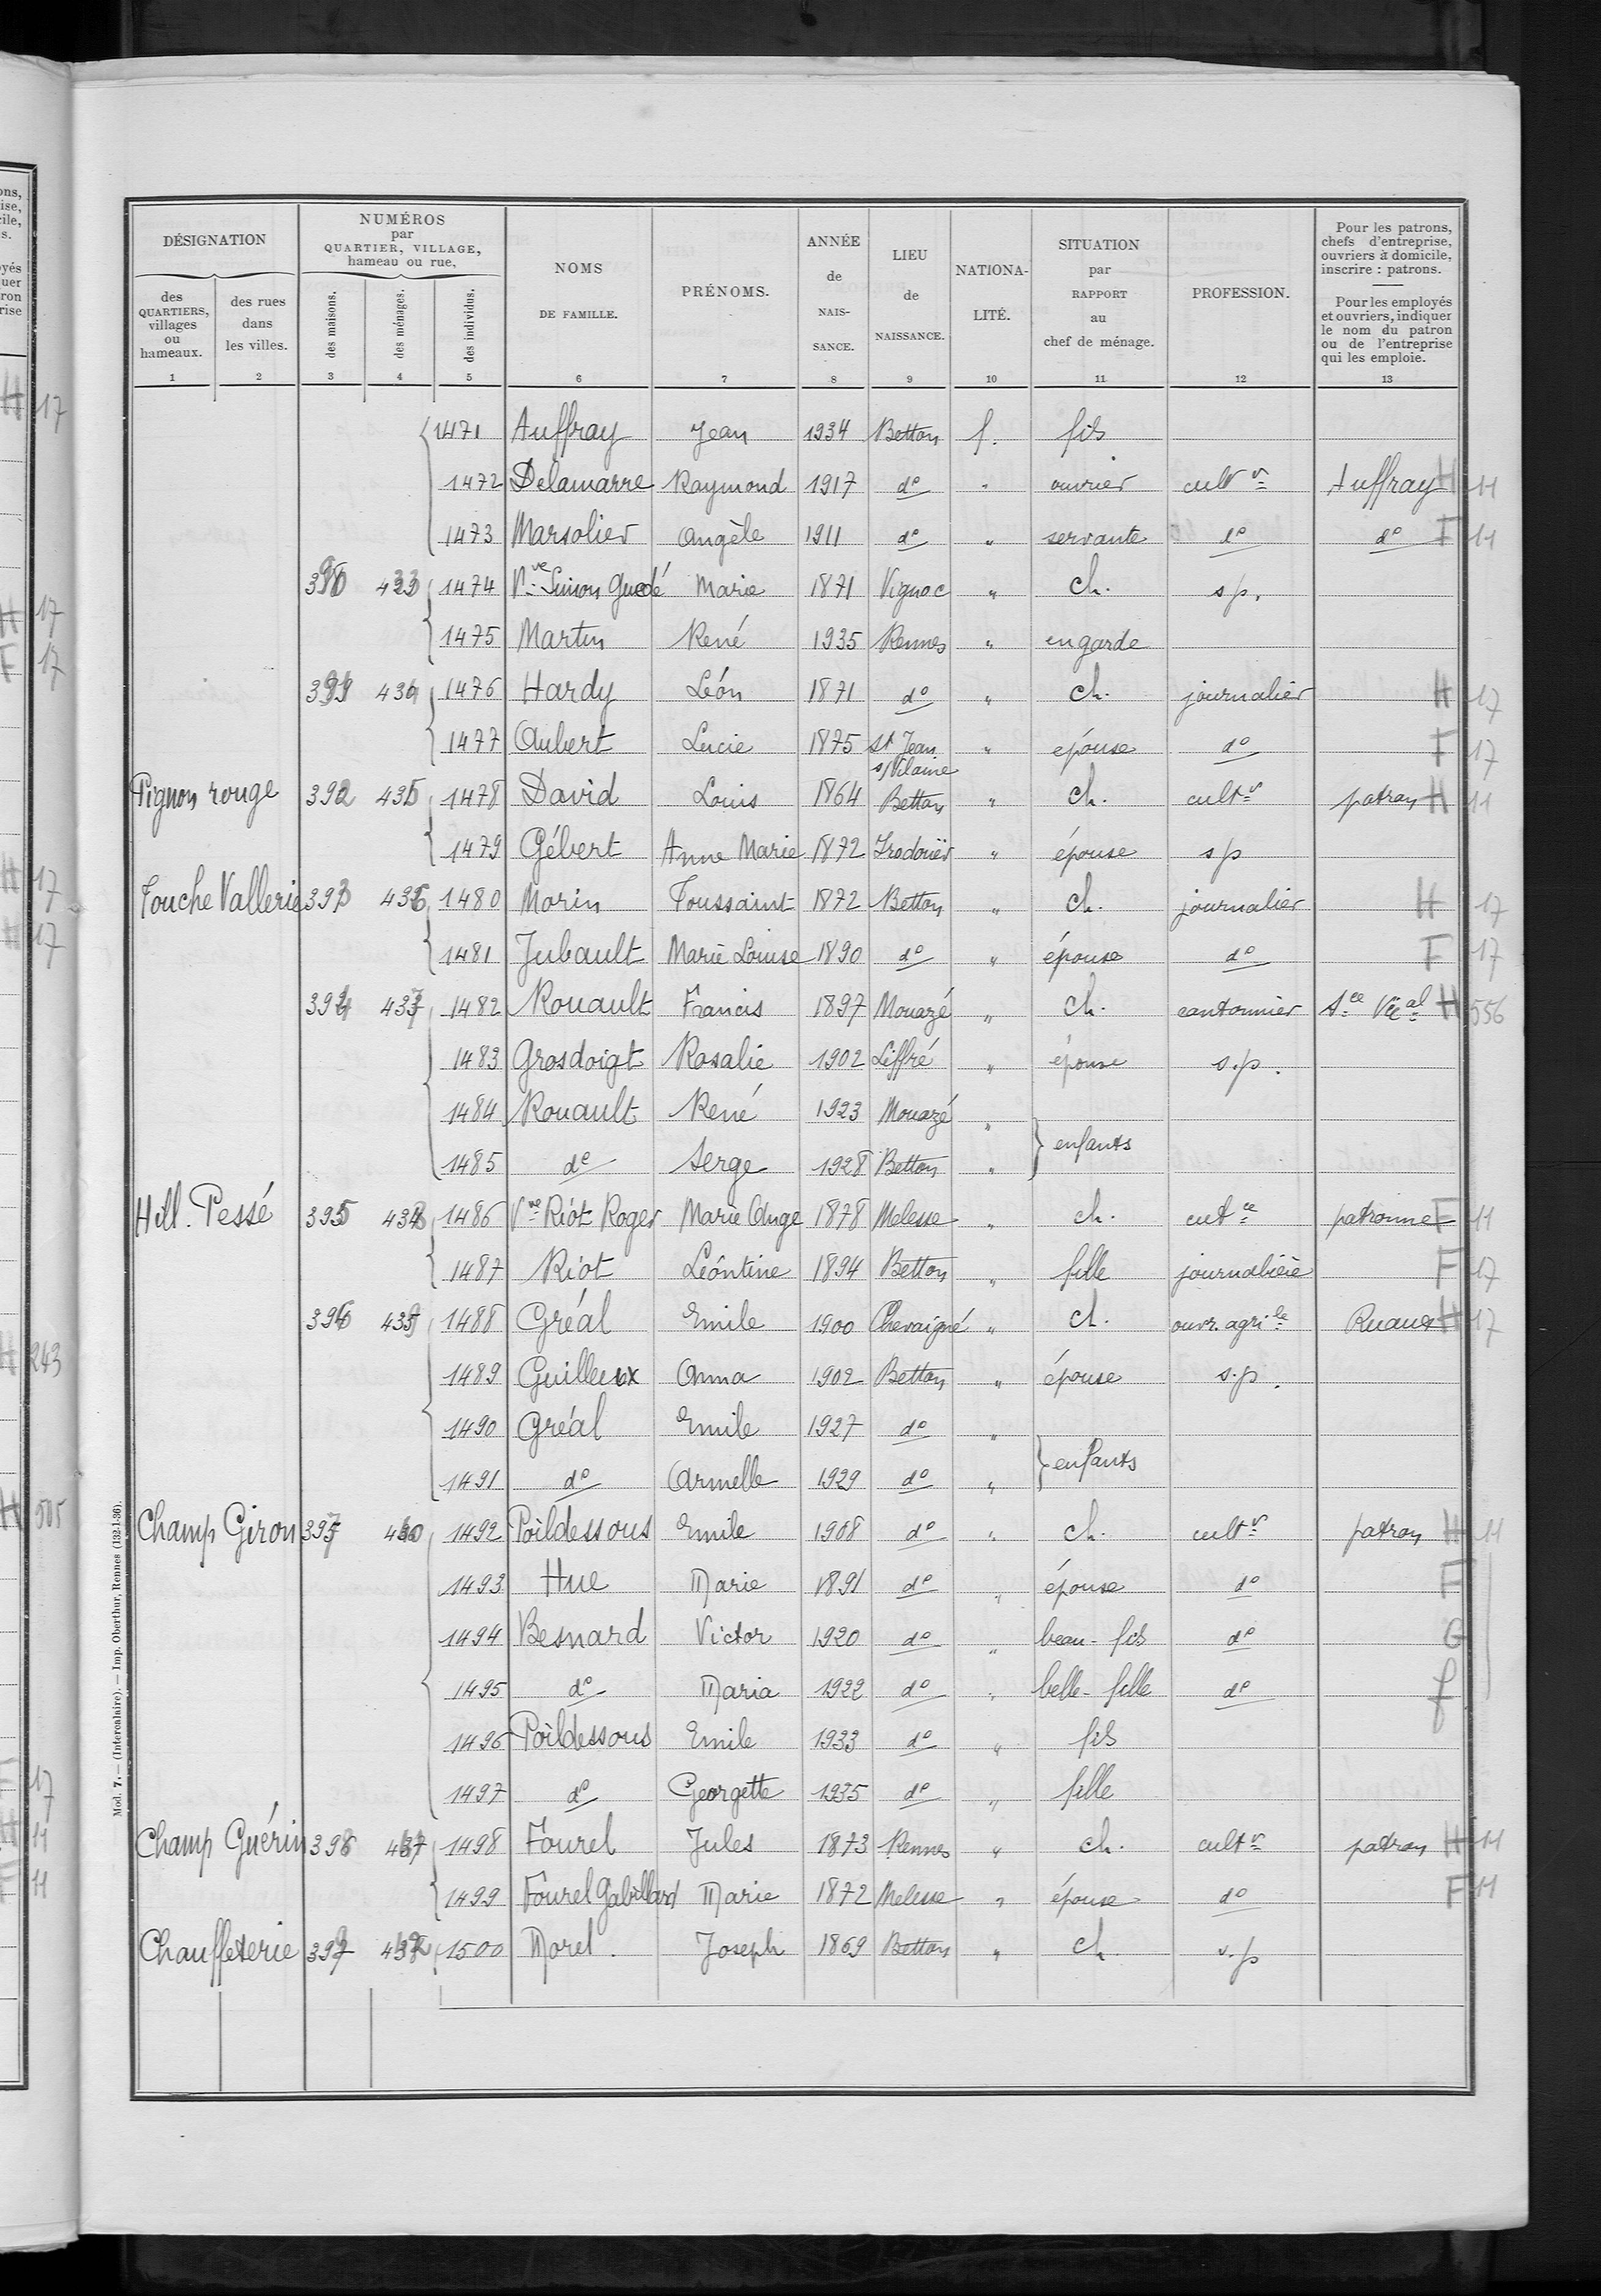 DÉSIGNATION
des QUARTIERS, villages ou hameaux.
des rues dans les villes.
NUMÉROS par QUARTIER, VILLAGE, hameau ou rue,
des maisons.
des ménages.
des individus.
NOMS DE FAMILLE.
PRÉNOMS.
ANNÉE de NAIS-SANCE.
LIEU de NAISSANCE.
NATIONA-LITÉ.
SITUATION par RAPPORT au chef de ménage.
PROFESSION.
Pour les patrons, chefs d'entreprise, ouvriers à domicile, inscrire : patrons.
Pour les employés et ouvriers, indiquer le nom du patron ou de l'entreprise qui les emploie.
1 2 3 4 5 6 7 8 9 10 11 12 13
1471 Auffray Jean 1934 Betton f. fils
1472 Delamarre Raymond 1917 do " ouvrier cultr Auffray H 11
1473 Marsolier Angèle 1911 do " servante do do F 11
433 1474 Vve Simon Guedé Marie 1871 Vignoc " ch. sp.
1475 Martin René 1935 Rennes " en garde
434 1476 Hardy Léon 1871 do " ch. journalier H 17
1477 Aubert Lucie 1875 St Jean s/Vilaine " épouse do F 17
Pignon rouge 392 435 1478 David Louis 1864 Betton " ch. cultr patron H 11
1479 Gébert Anne Marie 1872 Irodouër " épouse sp
Touche Vallerie 393 436 1480 Morin Toussaint 1872 Betton " ch. journalier H 17
1481 Jubault Marie Louise 1890 do " épouse do F 17
394 437 1482 Rouault Francis 1897 Mouazé " ch. cantonnier Sce Vcal H 556
1483 Grosdoigt Rosalie 1902 Liffré " épouse s.p.
1484 Rouault René 1923 Mouazé "
1485 do Serge 1928 Betton " } enfants
Hill. Pessé 395 438 1486 Vve Riot Roger Marie Ange 1878 Melesse " ch. cultce patronne F 11
1487 Riot Léontine 1894 Betton " fille journalière F 17
396 439 1488 Gréal Emile 1900 Chevaigné " ch. ouvr. agrile Ruaux H 17
1489 Guilleux Anna 1902 Betton " épouse s.p.
1490 Gréal Emile 1927 do "
1491 do Armelle 1929 do " } enfants
Champ Giron 397 440 1492 Poildessous Emile 1908 do " ch. cultr patron H 11
1493 Hue Marie 1891 do " épouse do F
1494 Besnard Victor 1920 do " beau-fils do G
1495 do Maria 1922 do " belle-fille do f
1496 Poildessous Emile 1933 do " fils
1497 do Georgette 1935 do " fille
Champ Guérin 398 1498 Fourel Jules 1873 Rennes " ch. cultr patron H 11
1499 Fourel Gabillard Marie 1872 Melesse " épouse do F 11
Chauffeterie 1500 Morel. Joseph 1869 Betton " ch s.p
Mod. 7. — (Intercalaire). — Imp. Oberthur, Rennes (132-1-36).